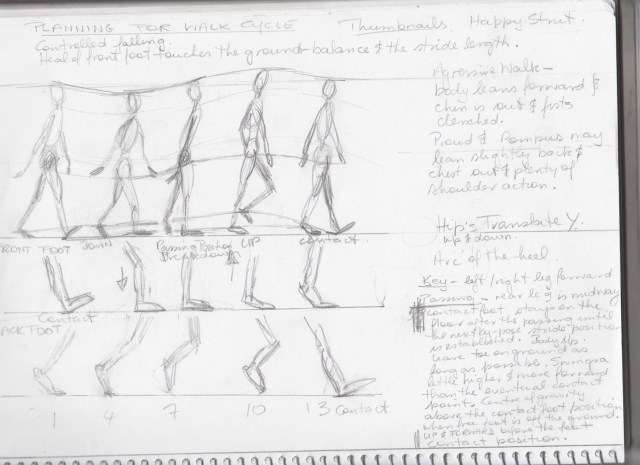 PLANNING FOR WALK CYCLE Thumbnails. Happy Strut.
Controlled falling.
Heal of front foot touches the ground balance & the stride length.
Agressive Walk -
body leans forward &
chin is out & fists
clenched.
Proud & Pompus may
lean slightly back &
chest out & plenty of
shoulder action.
Hip's Translate Y.
up & down.
Arc of the heel.
Key - left/right leg forward
Passing - rear leg is midway
contact foot stays on the
floor after the passing until
the next key-pose stride position
is established. Body Up.
leave toe on ground as
long as possible.
little higher, & more forward
than the eventual contact
point. Centre of gravity
above the contact foot position
when free foot is off the ground.
UP & FORWARD before the feet
contact position.
FRONT FOOT DOWN Passing Position UP contact.
Breakdown
Contact
BACK FOOT
1 4 7 10 13 Contact